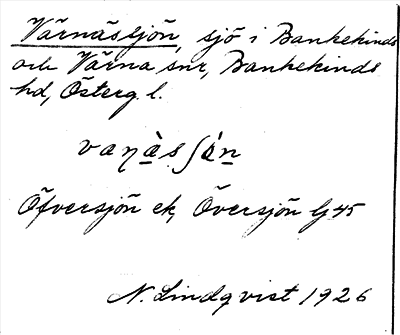 Värnäsjön, sjö i Bankekinds
och Värna snr, Bankekinds
hd, Österg. l.
vaṇàsʃön
Öfversjön ek, Översjön G 45
N. Lindqvist 1926